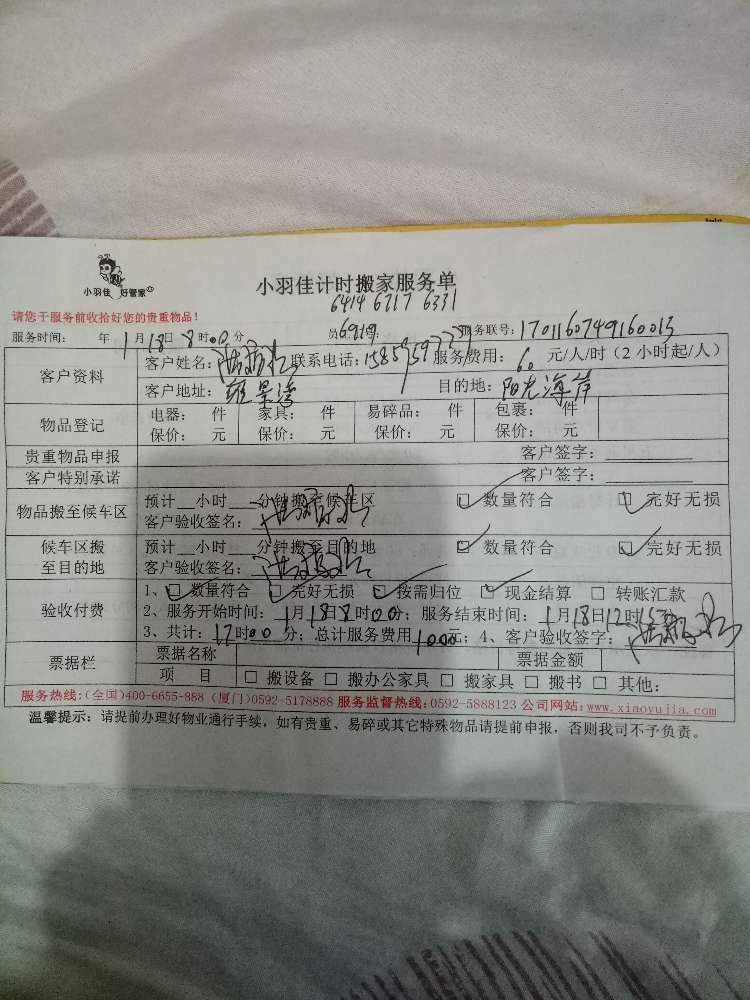 小羽佳 好管家
小羽佳计时搬家服务单
6414 6717 6331
请您于服务前收拾好您的贵重物品！
服务时间： 年 1月18日 8时00分 员工号： 6919 服务联号：1701160749160013
客户资料
客户姓名： 联系电话： 服务费用：60 元/人/时（2小时起/人）
客户地址： 目的地：阳光海岸
物品登记
电器： 件 家具： 件 易碎品： 件 包裹： 件
保价： 元 保价： 元 保价： 元 保价： 元
贵重物品申报 客户签字：
客户特别承诺 客户签字：
物品搬至候车区
预计__小时__分钟搬至候车区 ☑ 数量符合 ☑ 完好无损
客户验收签名：
候车区搬至目的地
预计__小时__分钟搬至目的地 ☑ 数量符合 ☑ 完好无损
客户验收签名：
验收付费
1、☑ 数量符合 ☑ 完好无损 ☑ 按需归位 ☑ 现金结算 □ 转账汇款
2、服务开始时间：1月18日8时00分；服务结束时间：1月18日12时
3、共计： 时00分；总计服务费用1000元；4、客户验收签字：
票据栏
票据名称 票据金额
项 目 □ 搬设备 □ 搬办公家具 □ 搬家具 □ 搬书 □ 其他：
服务热线：(全国)400-6655-888 (厦门)0592-5178888 服务监督热线：0592-5888123 公司网站：www.xiaoyujia.com
温馨提示：请提前办理好物业通行手续，如有贵重、易碎或其它特殊物品请提前申报，否则我司不予负责。